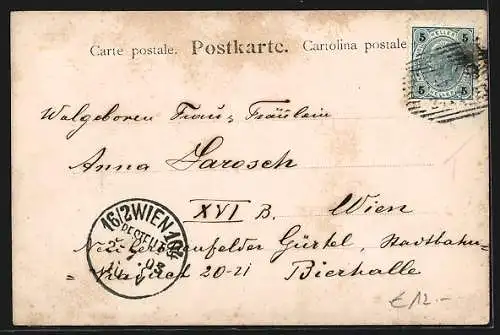 Carte postale. Postkarte. Cartolina postale
5 5
HELLER HELLER
5 5
Walgeboren Frau, Fräulein
Anna Jarosch
XVI B. Wien
Neulerchenfelder Gürtel, Stadtbahn=
=Viaduct 20-21 Bierhalle
16/2 WIEN 101
BESTELLT
€ 12.-